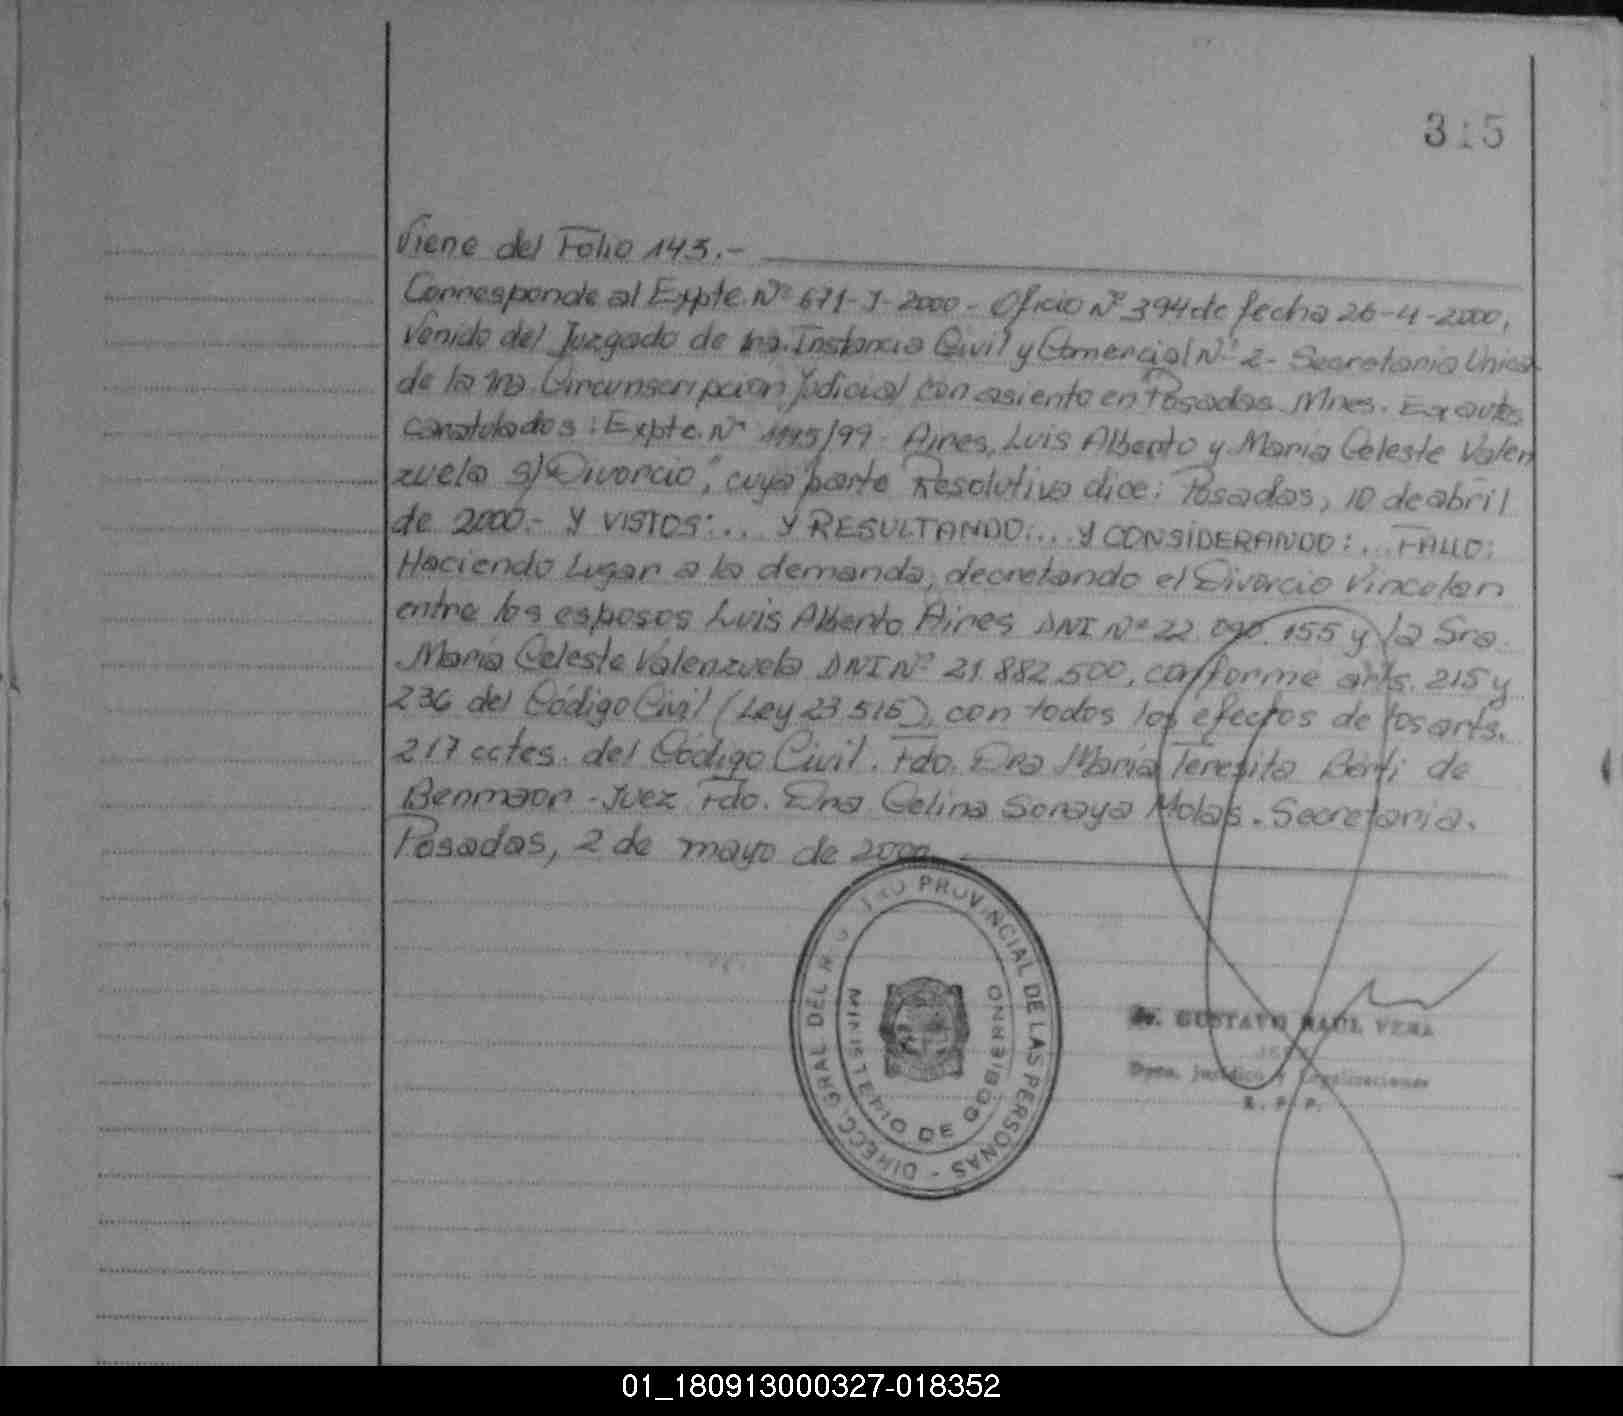 315
Viene del Folio 143.-
Corresponde al Expte. Nº 671-J-2000 - Oficio Nº 394 de fecha 26-4-2000,
Venido del Juzgado de 1ra. Instancia Civil y Comercial Nº 2- Secretaria Unica
de la 1ra. Circunscripción Judicial con asiento en Posadas Mnes. En autos
caratulados: Expte. Nº 1195/99 - Aires, Luis Alberto y María Celeste Valen
zuela S/Divorcio", cuya parte Resolutiva dice: Posadas, 10 de abril
de 2000.- Y VISTOS:... Y RESULTANDO:... Y CONSIDERANDO:... FALLO:
Haciendo Lugar a la demanda, decretando el Divorcio Vincular
entre los esposos Luis Alberto Aires DNI Nº 22.090.155 y la Sra.
María Celeste Valenzuela DNI Nº 21.882.500, conforme arts. 215 y
236 del Código Civil (Ley 23.515), con todos los efectos de los arts.
217 cctes. del Código Civil. Fdo. Dra María Teresita Berti de
Benmaor - Juez Fdo. Dra Celina Soraya Molas. Secretaria.
Posadas, 2 de mayo de 2000
DIRECC. GRAL DEL REGISTRO PROVINCIAL DE LAS PERSONAS -
MINISTERIO DE GOBIERNO
Dr. GUSTAVO RAUL VERA
JEFE
Dpto. Jurídico y Legalizaciones
R. P. P.
01_180913000327-018352